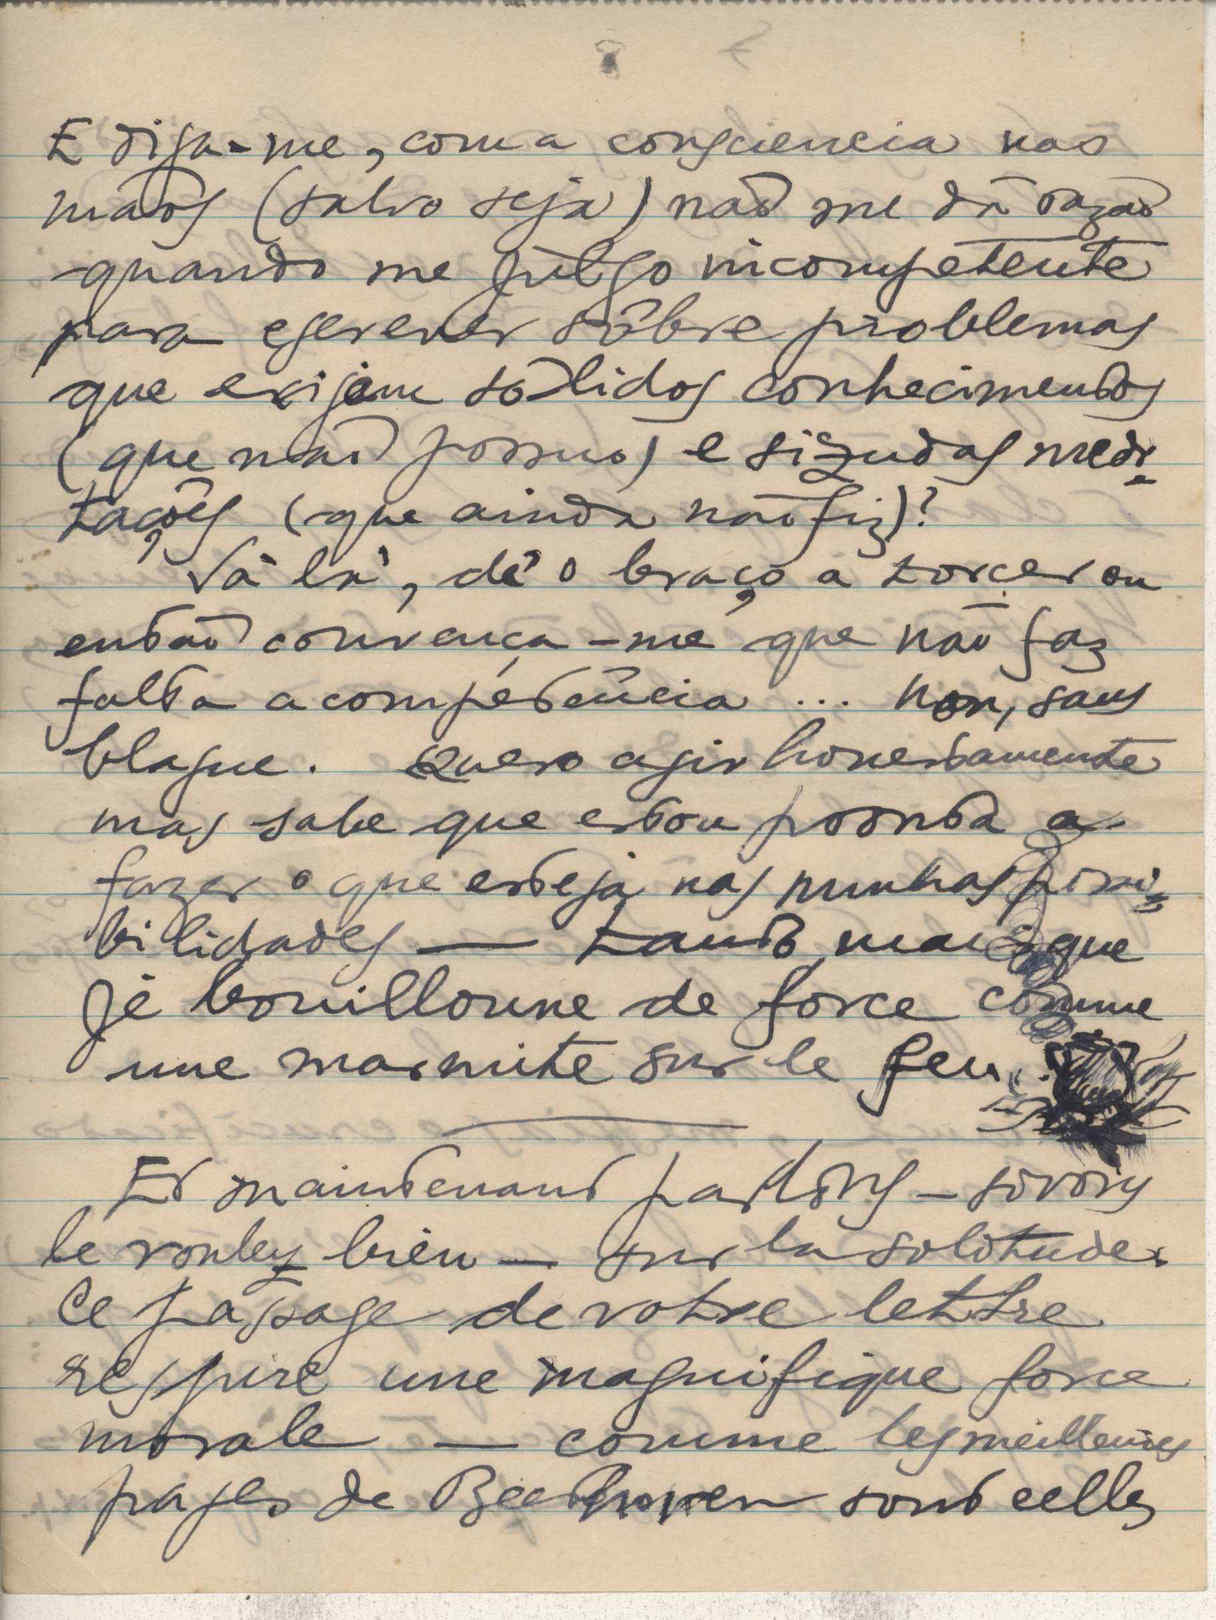 E diga-me, com a consciencia nas
mãos (salvo seja) não me dá razão
quando me julgo incompetente
para escrever sôbre problemas
que exijem sólidos conhecimentos
(que não possuo) e sizudas medi-
tações (que ainda não fiz)?
Vá lá, dê o braço a torcer ou
então convença-me que não faz
falta a competência ... Non, sans
blague. Quero agir honestamente
mas sabe que estou pronta a
fazer o que esteja nas minhas possi-
bilidades — tanto mais que
je bouillonne de force comme
une marmite sur le feu...
Et maintenant parlons — si vous
le voulez bien — sur la solitude.
Ce passage de votre lettre
respire une magnifique force
morale — comme les meilleures
pages de Beethoven sont celles